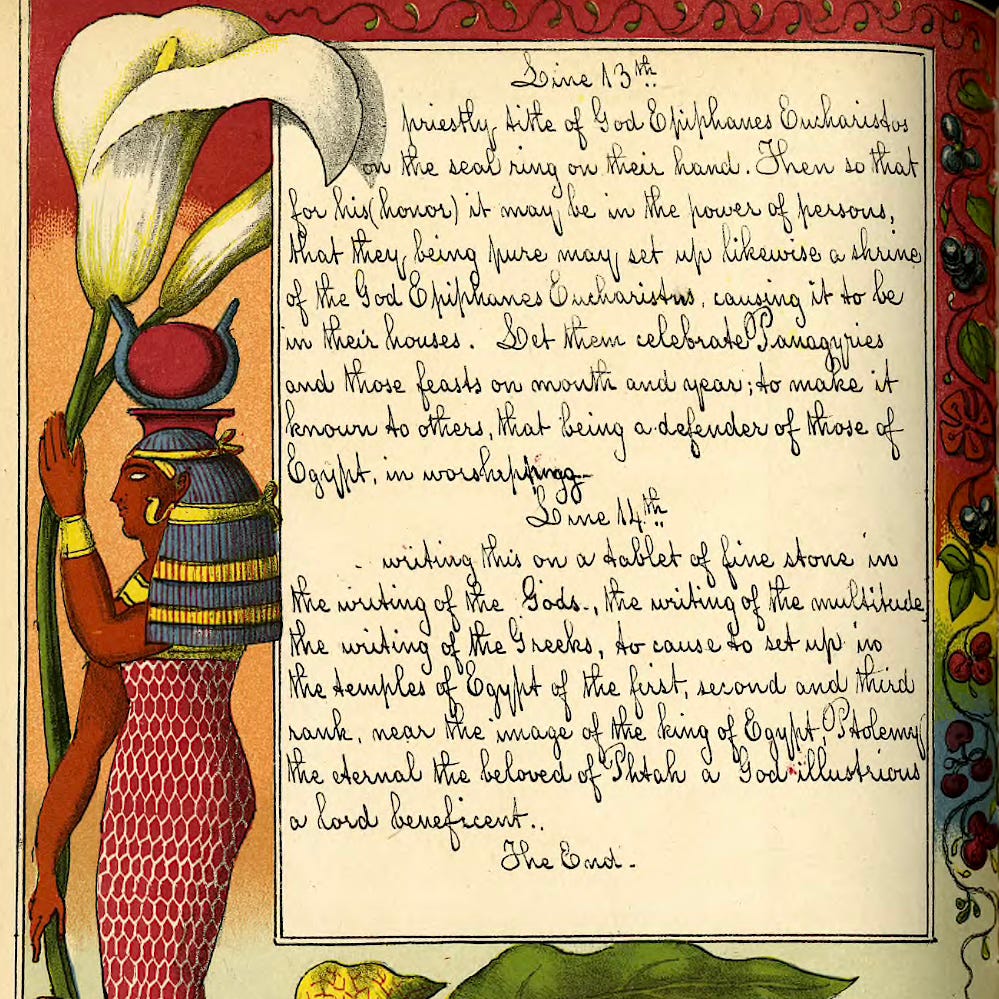 Line 13th
priestly title of God Epiphanes Eucharistos
on the seal ring on their hand. Then so that
for his (honor) it may be in the power of persons,
that they being pure may set up likewise a shrine
of the God Epiphanes Eucharistus, causing it to be
in their houses. Let them celebrate Panagyries
and those feasts on month and year; to make it
known to others, that being a defender of those of
Egypt, in worshepingg
Line 14th
writing this on a tablet of fine stone in
the writing of the Gods., the writing of the multitude,
the writing of the Greeks, to cause to set up in
the temples of Egypt of the first, second and third
rank, near the image of the king of Egypt, Ptolemy
the eternal the beloved of Phtah a God illustrious
a lord beneficent..
The End.